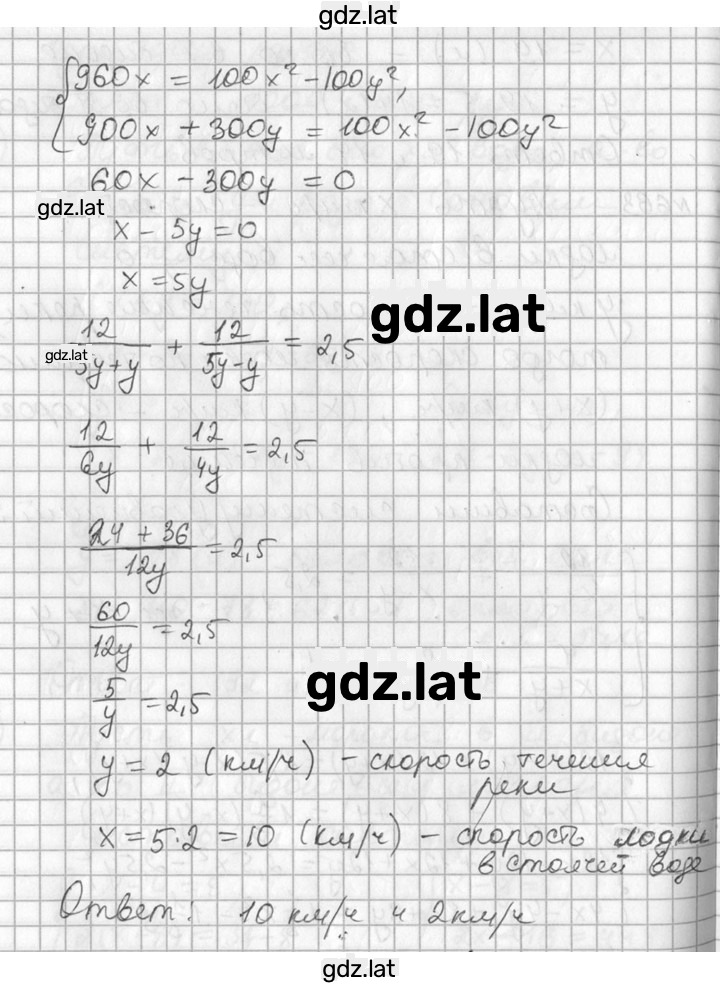 gdz.lat
{960x = 100x² - 100y²,
900x + 300y = 100x² - 100y²
60x - 300y = 0
gdz.lat
x - 5y = 0
x = 5y
gdz.lat
12/(5y+y) + 12/(5y-y) = 2,5
gdz.lat
12/6y + 12/4y = 2,5
(24 + 36)/12y = 2,5
60/12y = 2,5
gdz.lat
5/y = 2,5
y = 2 (км/ч) - скорость течения
реки
x = 5·2 = 10 (км/ч) - скорость лодки
в стоячей воде
Ответ: 10 км/ч и 2 км/ч
gdz.lat